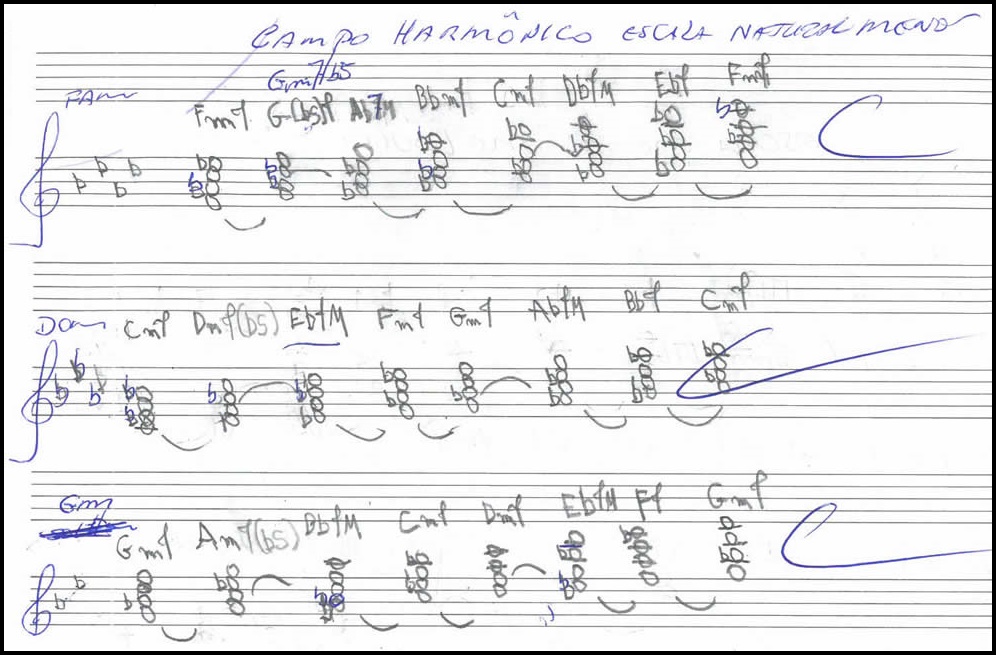 CAMPO HARMÔNICO ESCALA NATURAL MENOR
Gm7/b5
FAm
Fm7 G(b5)7 Ab7M Bbm7 Cm7 Db7M Eb7 Fm7
DOm Cm7 Dm7(b5) Eb7M Fm7 Gm7 Ab7M Bb7 Cm7
Gm
Gm7 Am7(b5) Bb7M Cm7 Dm7 Eb7M F7 Gm7